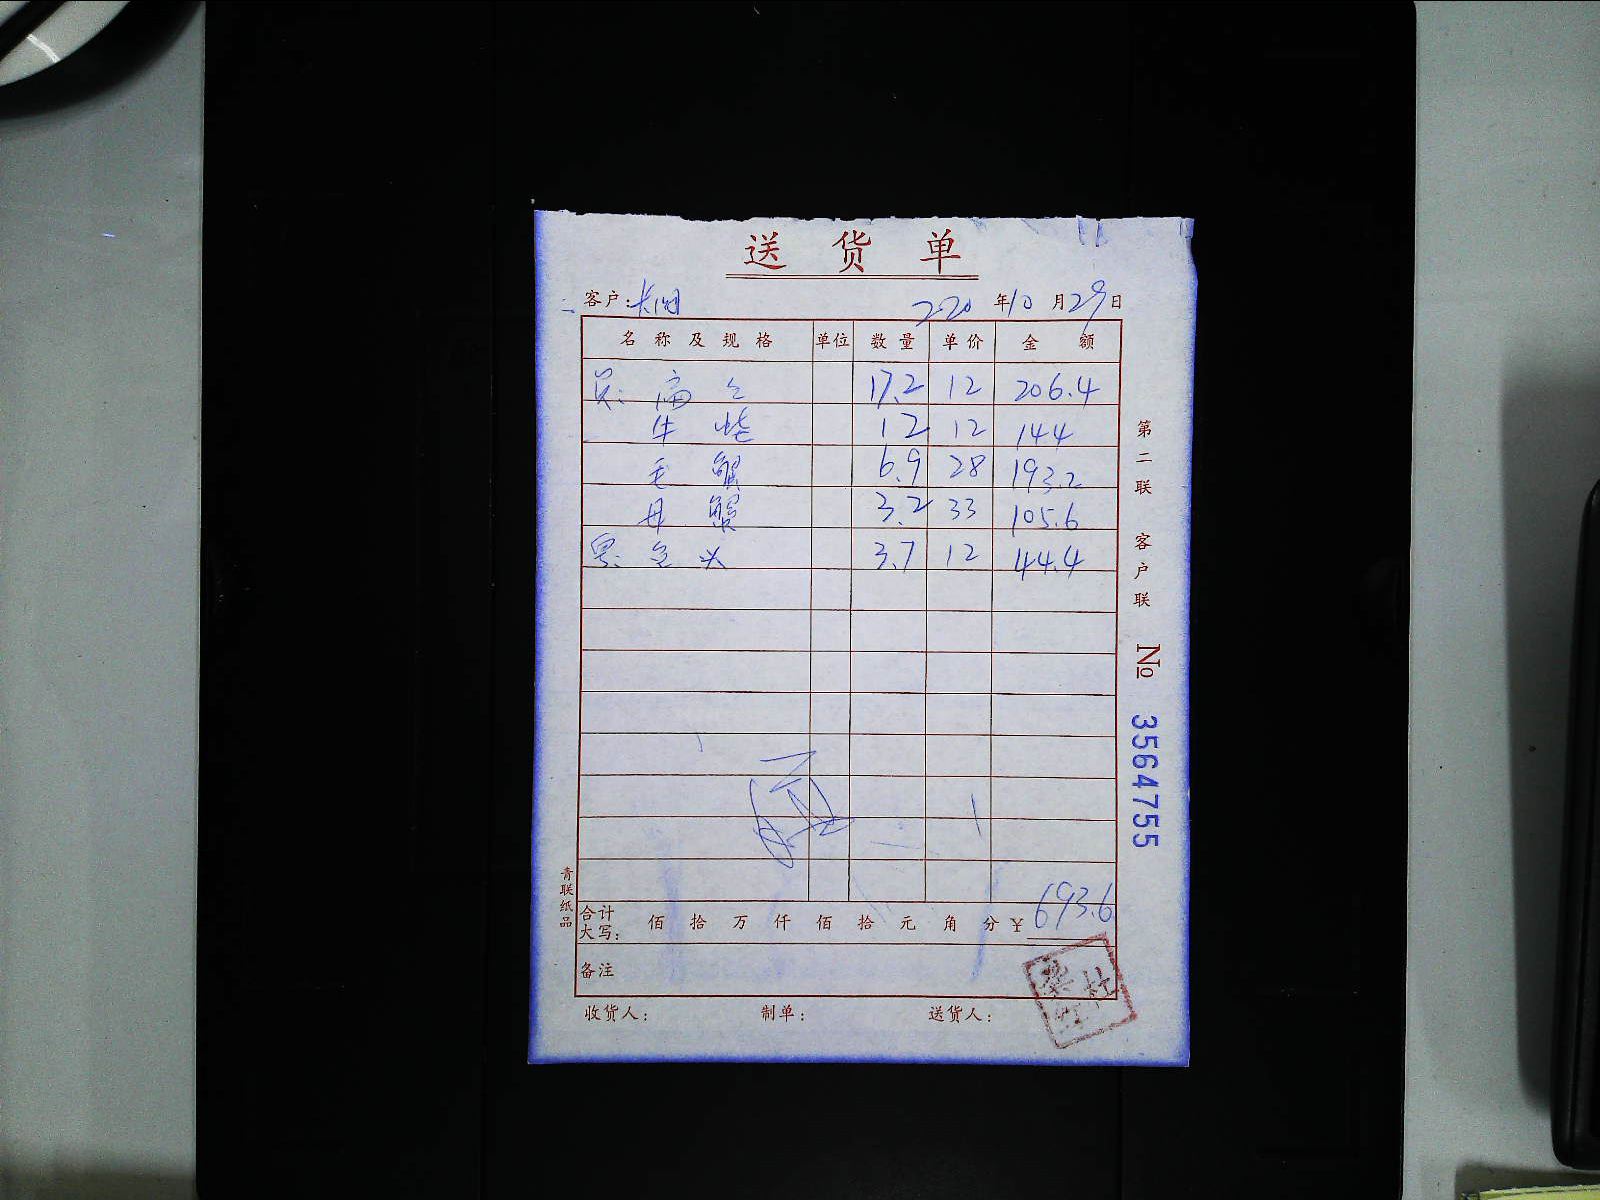 送 货 单
客户: 2020 年 10 月 29 日
名 称 及 规 格 单位 数 量 单 价 金 额
17.2 12 206.4
12 12 144
毛 蟹 6.9 28 193.2
母 蟹 3.2 33 105.6
3.7 12 44.4
合计大写: 佰 拾 万 仟 佰 拾 元 角 分 ¥ 693.6
备注
收货人: 制单: 送货人:
第二联 客户联 No 3564755
青联纸品